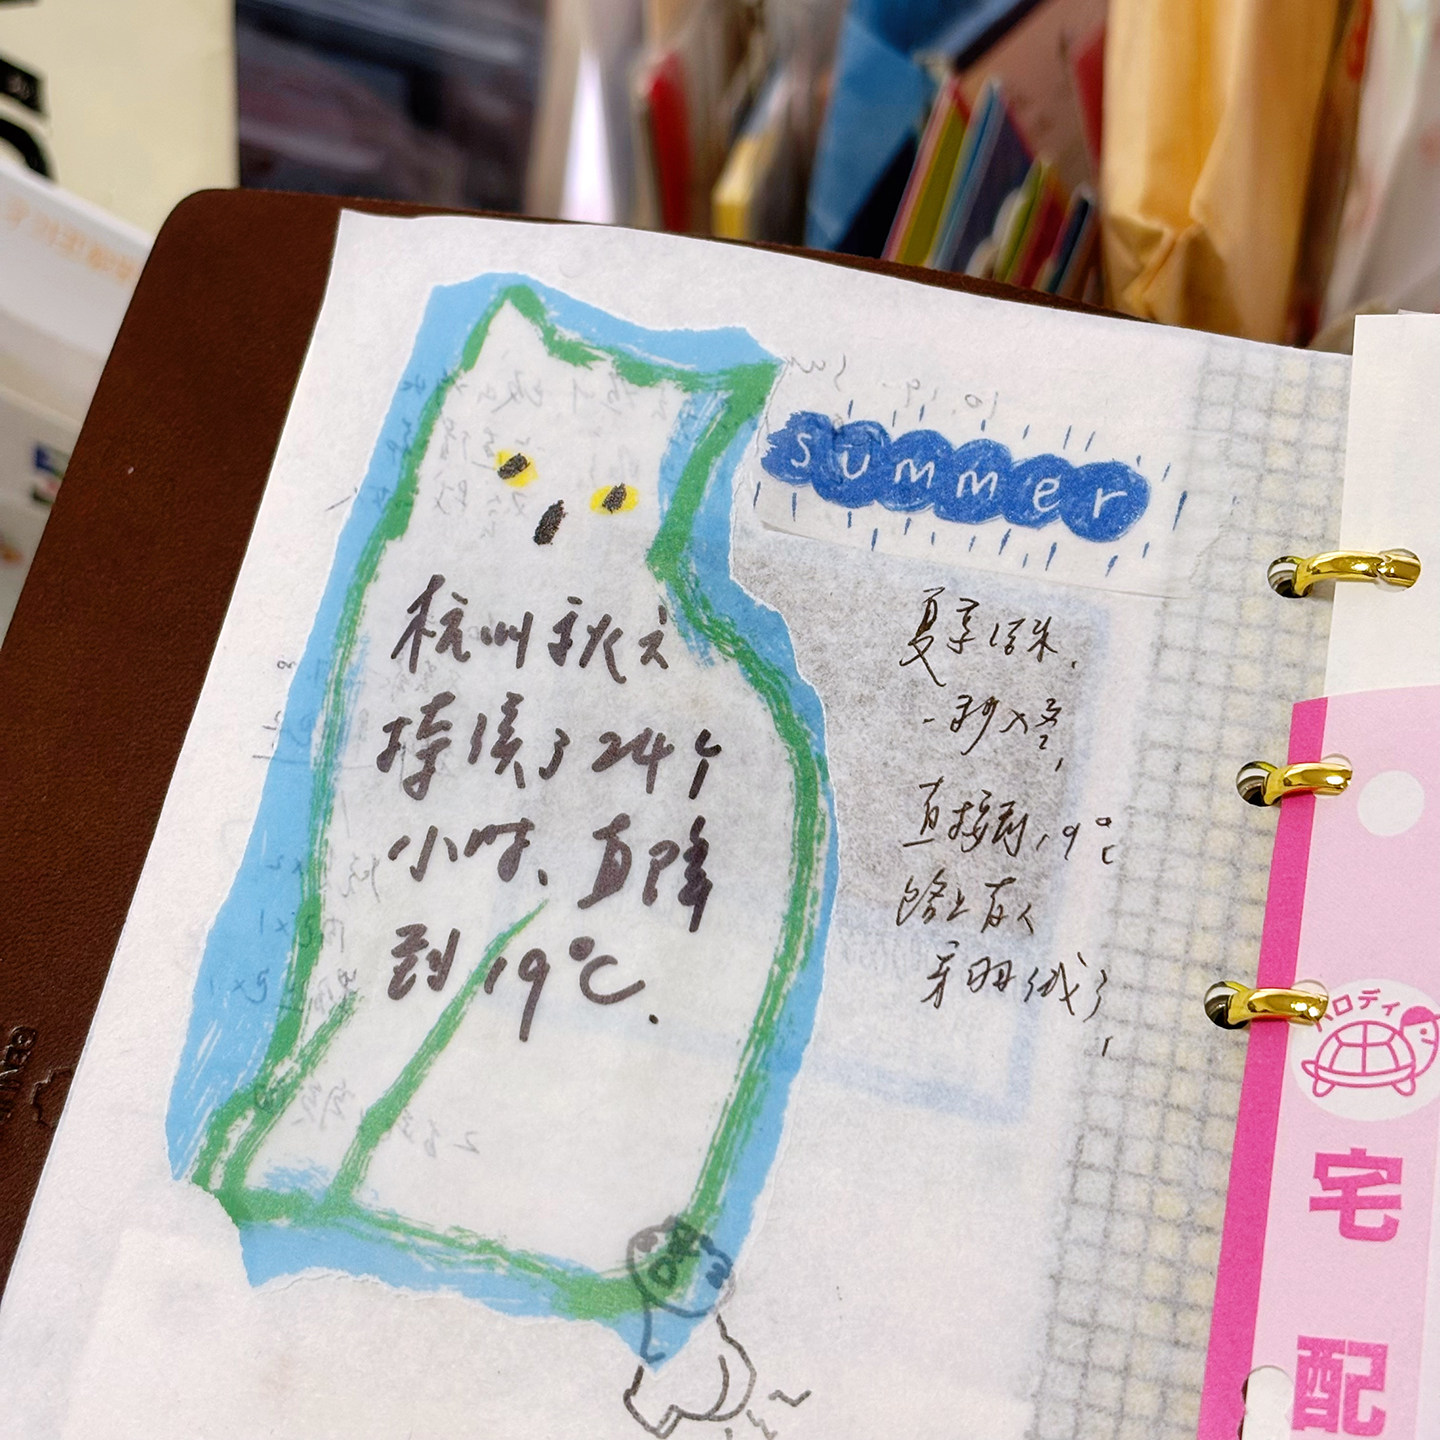 杭州秋天
持续了24个
小时、直降
到19℃.
summer
夏季结束,
一秒入冬,
直接到19℃
路上有人
穿羽绒了!
ハロディ
宅
配